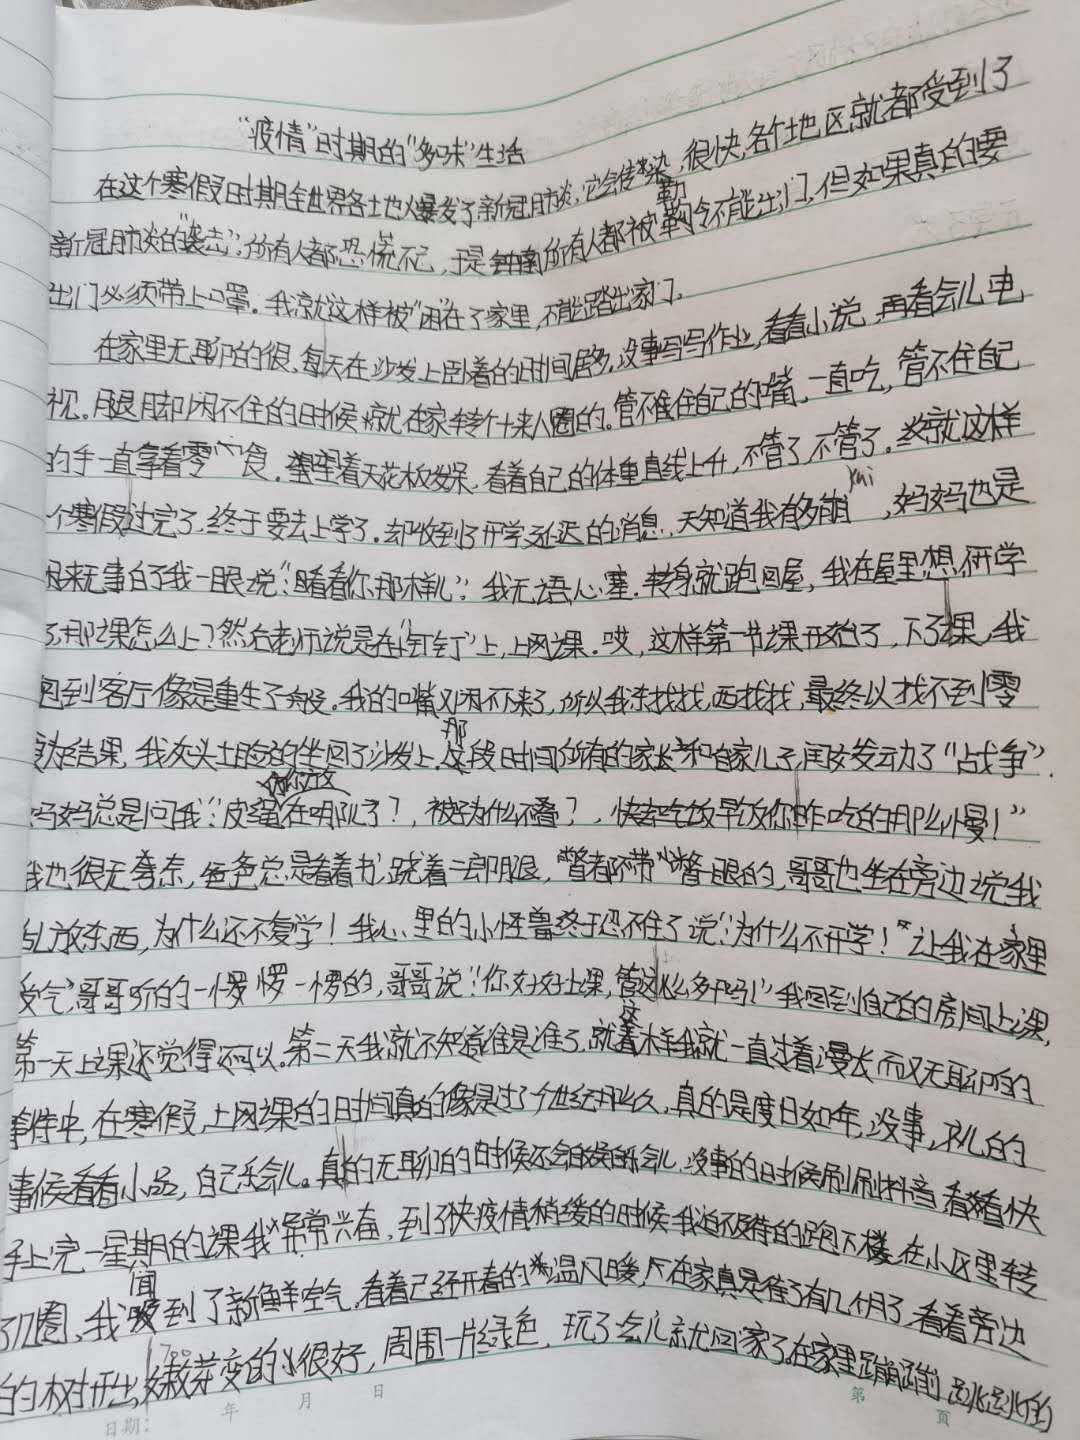 “疫情”时期的“多味”生活
在这个寒假时期全世界各地爆发了新冠肺炎,它会传染,很快,各个地区就都受到了
新冠肺炎的“袭击”,所有人都恐慌不已,于是所有人都被勒令不能出门,但如果真的要
出门必须带上口罩。我就这样被“困”在了家里,不能踏出家门。
在家里无聊的很,每天在沙发上卧着的时间居多,没事写写作业,看看小说,再看会儿电
视。腿脚闲不住的时候就在家转个十来圈的。管不住自己的嘴,一直吃,管不住自己
的手一直拿着零食。望着天花板发呆,看着自己的体重直线上升,不管了,不管了。就这样
个寒假过完了.终于要去上学了.却收到了开学延迟的消息,天知道我有多崩kui,妈妈也是
闲来无事白了我一眼说:“瞧看你那样儿”,我无语,心塞.转身就跑回屋,我在屋里想,开学
了,那课怎么上?然后老师说是在“钉钉”上,上网课.哎,这样第一节课开始了,下了课,我
跑到客厅像是重生了一般.我的嘴又闲不下来了,所以我东找找,西找找,最终以找不到零
食为结果,我灰头土脸的坐回了沙发上.那段时间所有的家长和自家儿子,闺女发动了“战争”.
妈妈总是问我:“皮筋你放在哪儿了?,被子为什么不叠?,快来吃饭早饭你咋吃的那么慢!”
我也很无奈,爸爸总是看着书,跷着二郎腿,瞥都不带瞥一眼的,哥哥也坐在旁边说我
乱放东西,为什么还不复学!我心里的小怪兽终于忍不住了说:“为什么不开学!”让我在家里
受气,哥哥听的一愣愣一愣的,哥哥说:“你好好上课,管这么多干吗!”我回到自己的房间上课,
第一天上课还觉得还可以.第二天我就不知道谁是谁了.就这样我就一直过着漫长而又无聊的
事件中,在寒假,上网课的时间真的像是过了个世纪那么久,真的是度日如年,没事,儿的
事候看看小品,自己乐会儿。真的无聊的时候还会会儿,没事的时候刷刷抖音,看看快
手上完一星期的课我异常兴奋,到了快疫情稍缓的时候我迫不及待的跑下楼,在小区里转
了几圈,我闻到了新鲜空气,看着已经开春的温风暖,在家真是待了有几个月了,看看旁边
的树开出嫩芽变的很好,周围一片绿色,玩了会儿就回家了.在家里蹦蹦跳跳的
日期: 年 月 日 第 页